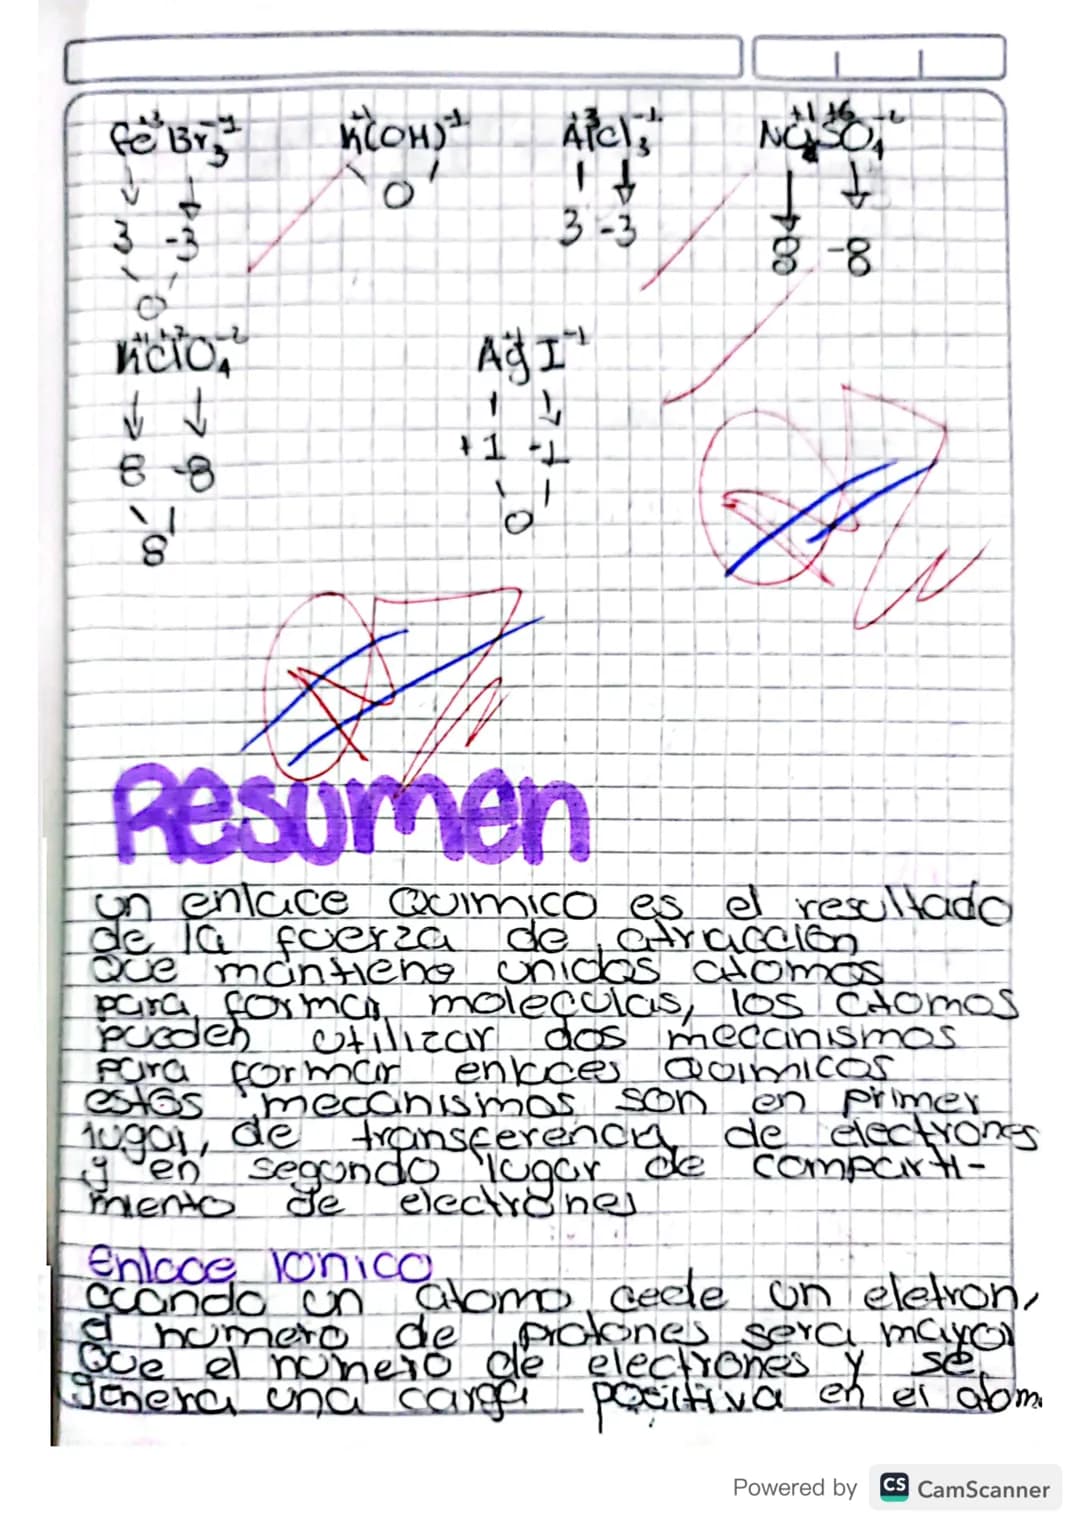 Fe⁺³Br₃⁻¹ K⁺¹(OH)⁻¹ Al⁺³Cl₃⁻¹ Na₂⁺¹S⁺⁶O₄⁻²
3 -3 0 3 -3 8 -8
0
K⁺¹Cl⁺⁷O₄⁻² Ag⁺¹I⁻¹
8 -8 +1 -1
8 0
Resumen
un enlace Quimico es el resultado
de la fuerza de atracción
que mantiene unidos atomos
para formar moleculas, los atomos
pueden utilizar dos mecanismos
para formar enlaces Quimicos
estos mecanismos son en primer
lugar, de transferencia de electrones
y en segundo lugar de comparti-
miento de electrónes
Enlace Ionico
cuando un atomo cede un eletron,
el numero de protones sera mayor
que el numero de electrones y se
genera una carga positiva en el atom
Powered by CS CamScanner